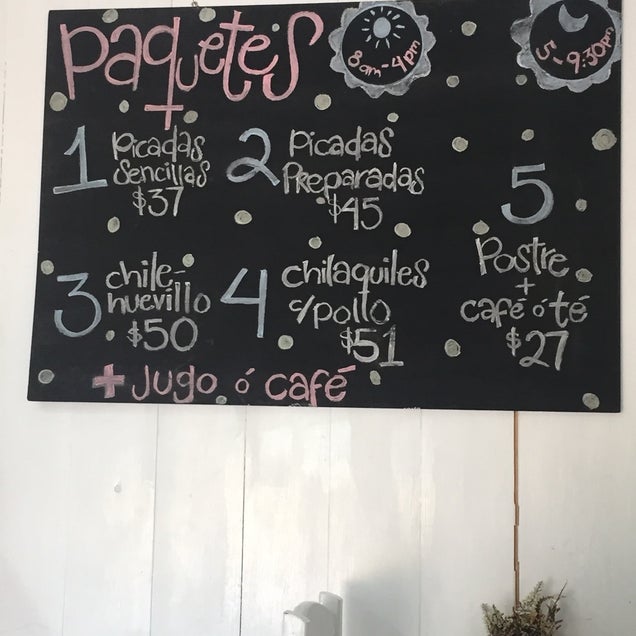 Paquetes
8am-4pm
5-9:30pm
1 Picadas
Sencillas
$37
2 Picadas
Preparadas
$45
3 chile-
huevillo
$50
4 chilaquiles
c/pollo
$51
+ Jugo ó café
5
Postre
+
café ó té
$27